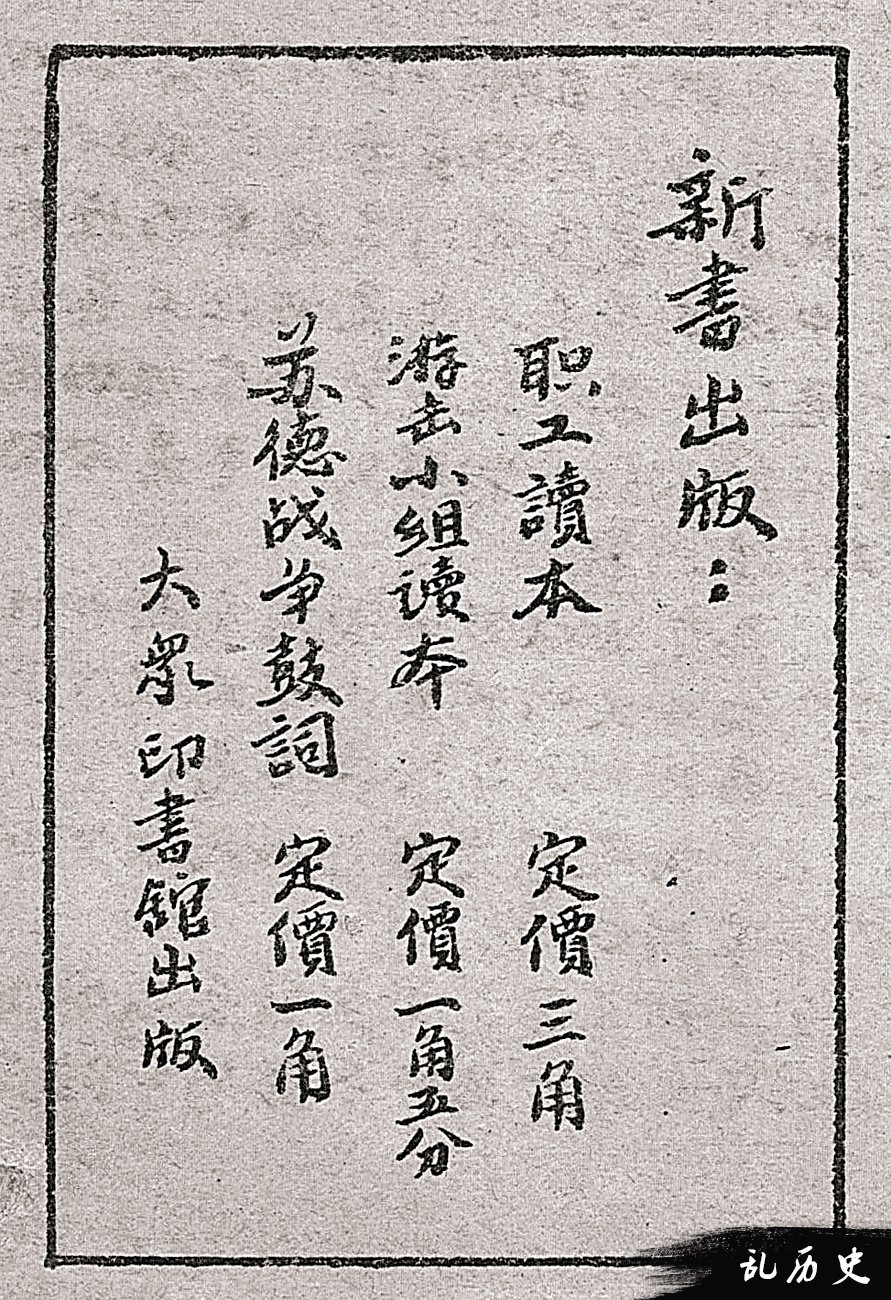 新書出版：
职工讀本 定價三角
游击小组读本 定價一角五分
苏德战争鼓詞 定價一角
大眾印書舘出版
乱历史